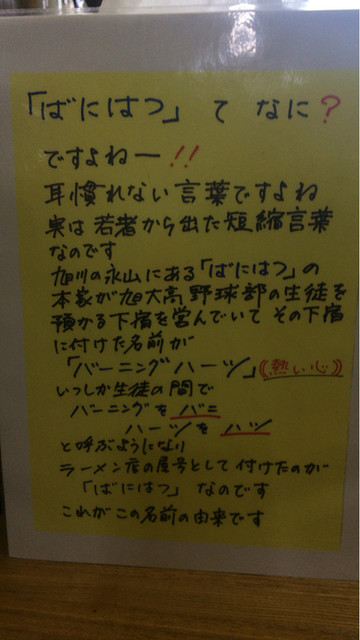 「ばにはつ」て なに?
ですよねー!!
耳慣れない言葉ですよね
実は若者から出た短縮言葉
なのです
旭川の永山にある「ばにはつ」の
本家が旭大高野球部の生徒を
預かる下宿を営んでいて その下宿
に付けた名前が
「バーニングハーツ」(熱い心)
いつしか生徒の間で
バーニングを バニ
ハーツを ハツ
と呼ぶようになり
ラーメン店の屋号として付けたのが
「ばにはつ」 なのです
これがこの名前の由来です